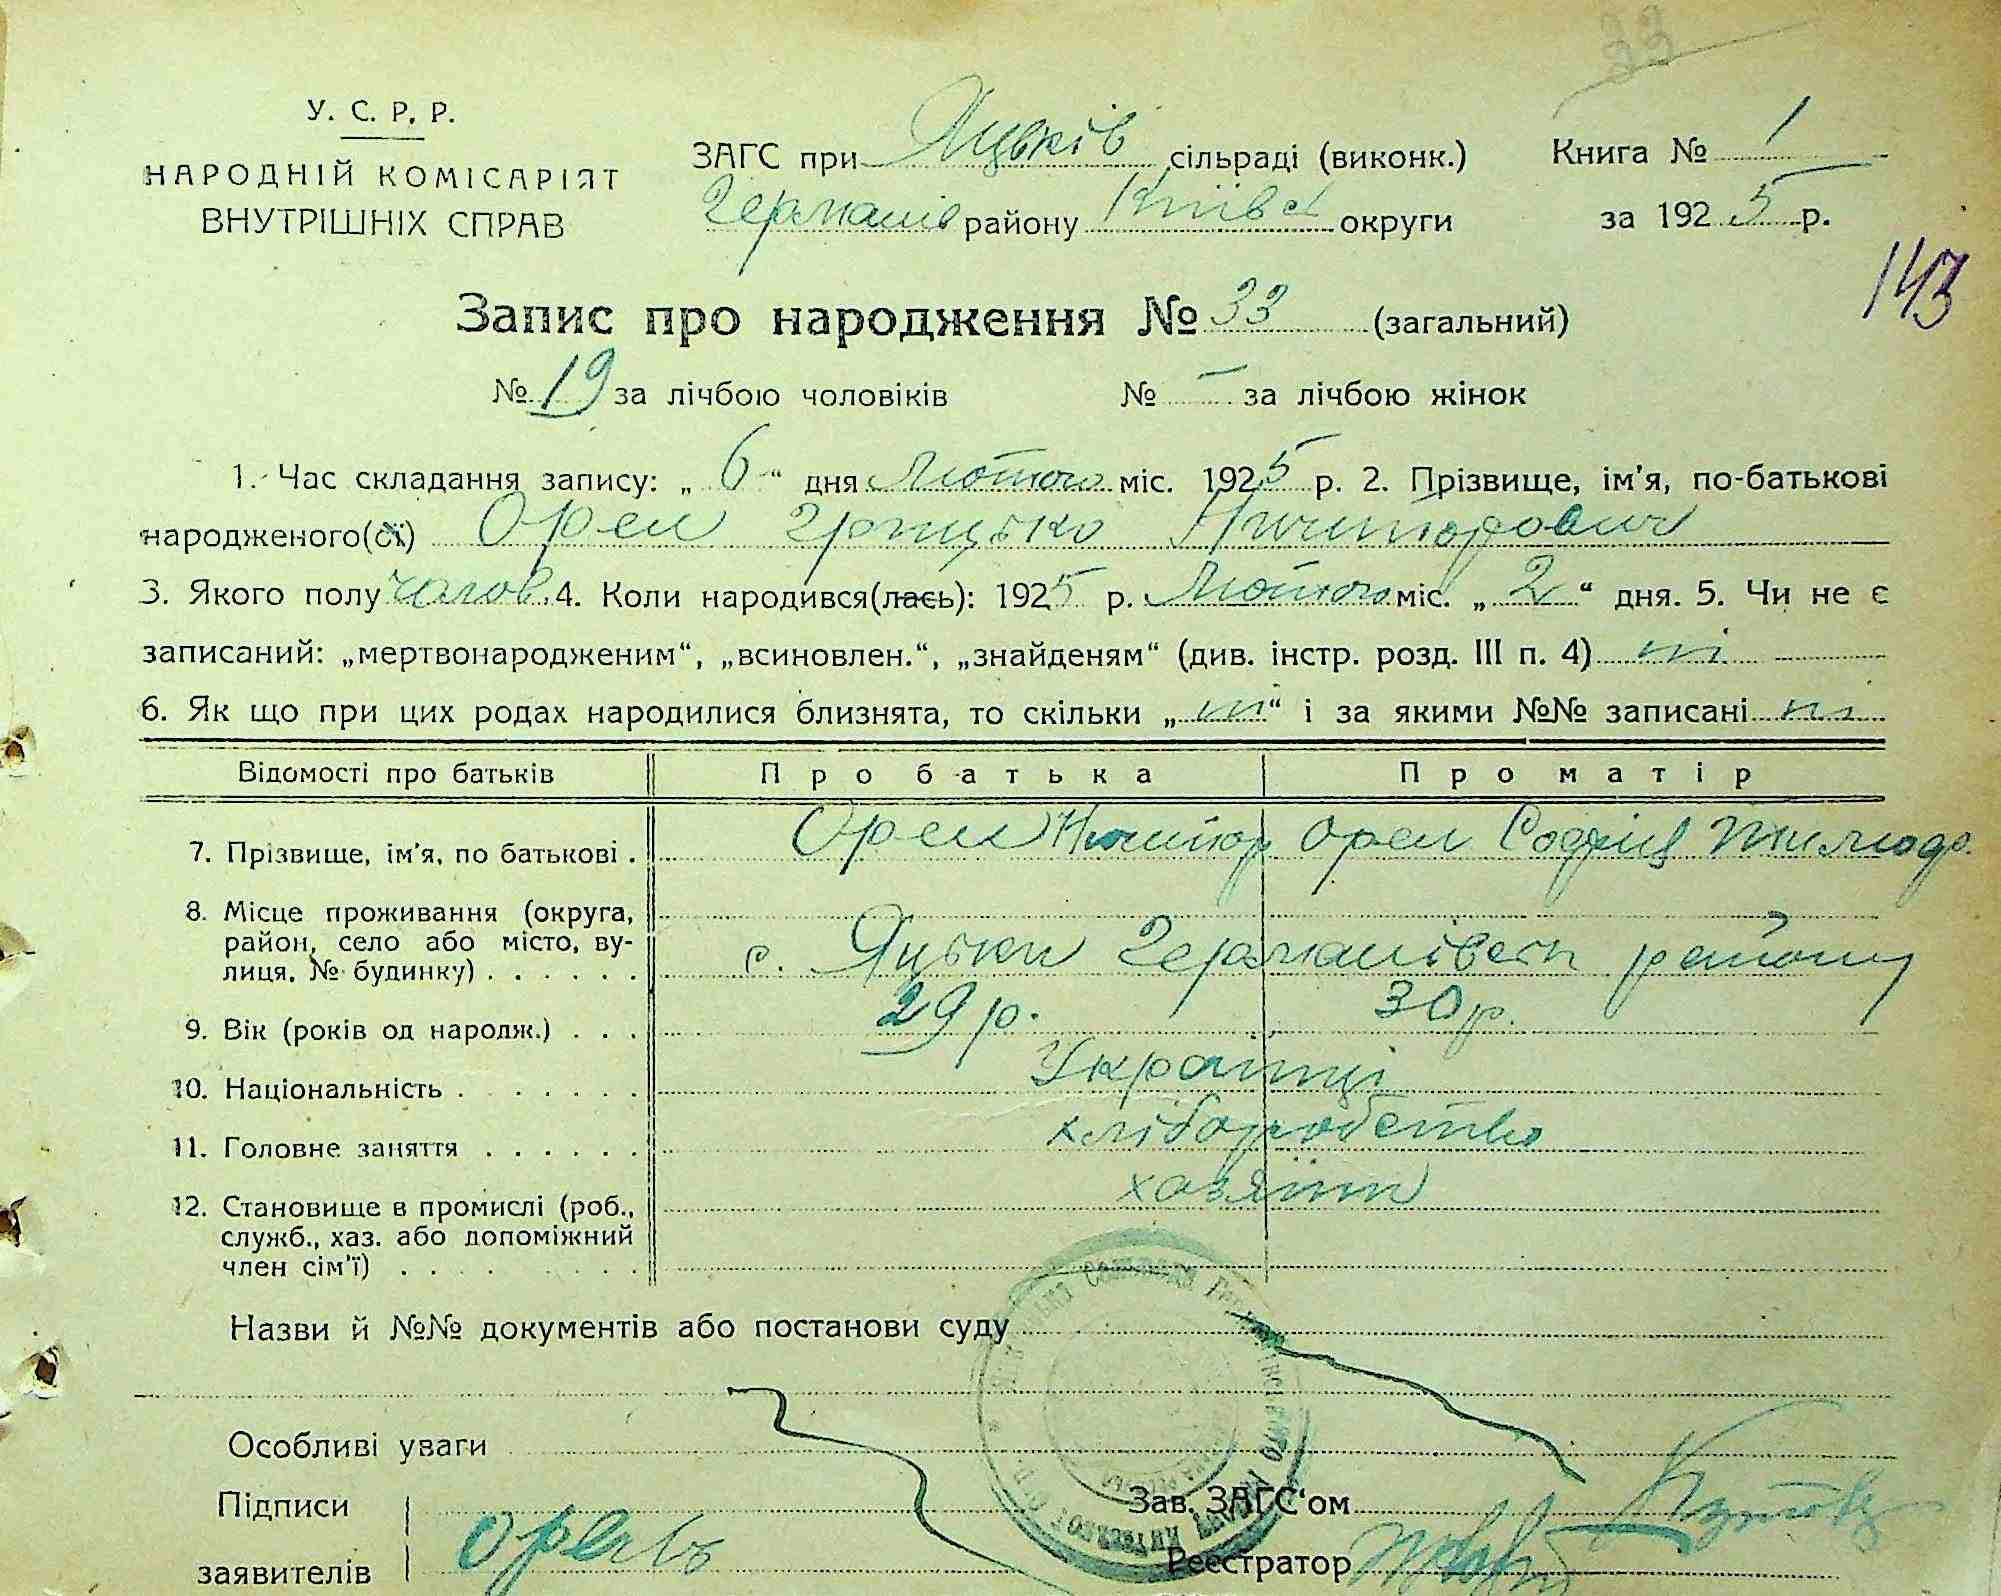 33
У. С. Р. Р.
НАРОДНІЙ КОМІСАРІЯТ
ВНУТРІШНІХ СПРАВ
ЗАГС при Яцьків сільраді (виконк.)
Германів району Київськ округи
Книга № 1
за 1925 р.
143
Запис про народження № 33 (загальний)
№ 19 за лічбою чоловіків № — за лічбою жінок
1. Час складання запису: „ 6 “ дня Лютого міс. 1925 р. 2. Прізвище, ім'я, по-батькові
народженого(ої) Орел Грицько Ничипорович
3. Якого полу чолов. 4. Коли народився(лась): 1925 р. Лютого міс. „ 2 “ дня. 5. Чи не є
записаний: „мертвонародженим“, „всиновлен.“, „знайденям“ (див. інстр. розд. III п. 4) ні
6. Як що при цих родах народилися близнята, то скільки „ ні “ і за якими №№ записані ні
Відомості про батьків Про батька Про матір
7. Прізвище, ім'я, по батькові . Орел Ничипор Орел Софія
8. Місце проживання (округа,
район, село або місто, ву-
лиця, № будинку) . . . . . . с. Яцьки Германівськ району
9. Вік (років од народж.) . . . 29 р. 30 р.
10. Національність . . . . . . . Українці
11. Головне заняття . . . . . . хліборобство
12. Становище в промислі (роб., хазяїни
служб., хаз. або допоміжний
член сім'ї) . . . . . . . .
Назви й №№ документів або постанови суду
Особливі уваги
Підписи
заявителів Орел
Зав. ЗАГС'ом
Реєстратор